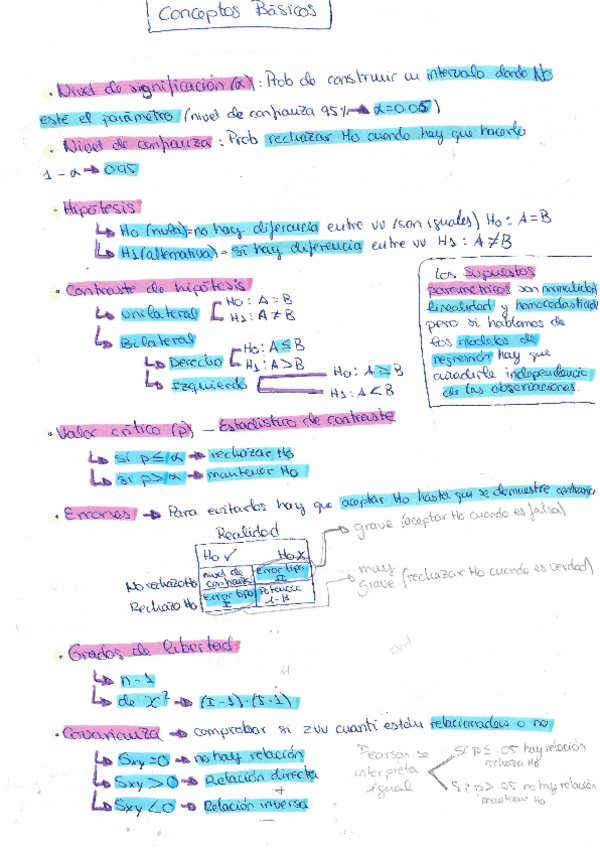 Conceptos Básicos
· Nivel de significación (α): Prob de construir un intervalo donde No
esté el parámetro (nivel de confianza 95% → α=0.05)
· Nivel de confianza: Prob rechazar Ho cuando hay que hacerlo
1-α → 0.95
· Hipótesis
↳ Ho (nula)=no hay diferencia entre vv (son iguales) Ho: A=B
↳ H1 (alternativa)= si hay diferencia entre vv H1: A≠B
· Contraste de hipótesis
↳ Unilateral
Ho: A=B
H1: A≠B
↳ Bilateral
↳ Derecho
Ho: A≤B
H1: A>B
↳ Izquierdo
Ho: A≥B
H1: A<B
Los supuestos
paramétricos son normalidad,
linealidad y homocedasticidad
pero si hablamos de
los modelos de
regresión hay que
añadirle independencia
de las observaciones.
· Valor crítico (p) — Estadístico de contraste
↳ Si p≤α → rechazar Ho
↳ Si p>α → mantener Ho
· Errores → Para evitarlos hay que aceptar Ho hasta que se demuestre contrario
Realidad
Ho ✓ Ho X
No rechazo Ho nivel de confianza error tipo II
Rechazo Ho error tipo I Potencia 1-B
grave (aceptar Ho cuando es falsa)
muy
grave (rechazar Ho cuando es verdad)
· Grados de libertad
↳ n-1
↳ de X² → (I-1)·(J-1)
· Covarianza → comprobar si 2vv cuanti están relacionadas o no
↳ Sxy=0 → no hay relación
↳ Sxy>0 → Relación directa
+
↳ Sxy<0 → Relación inversa
-
Pearson se
interpreta
igual
Si p≤.05 hay relación
rechaza Ho
Si p>.05 no hay relación
mantener Ho